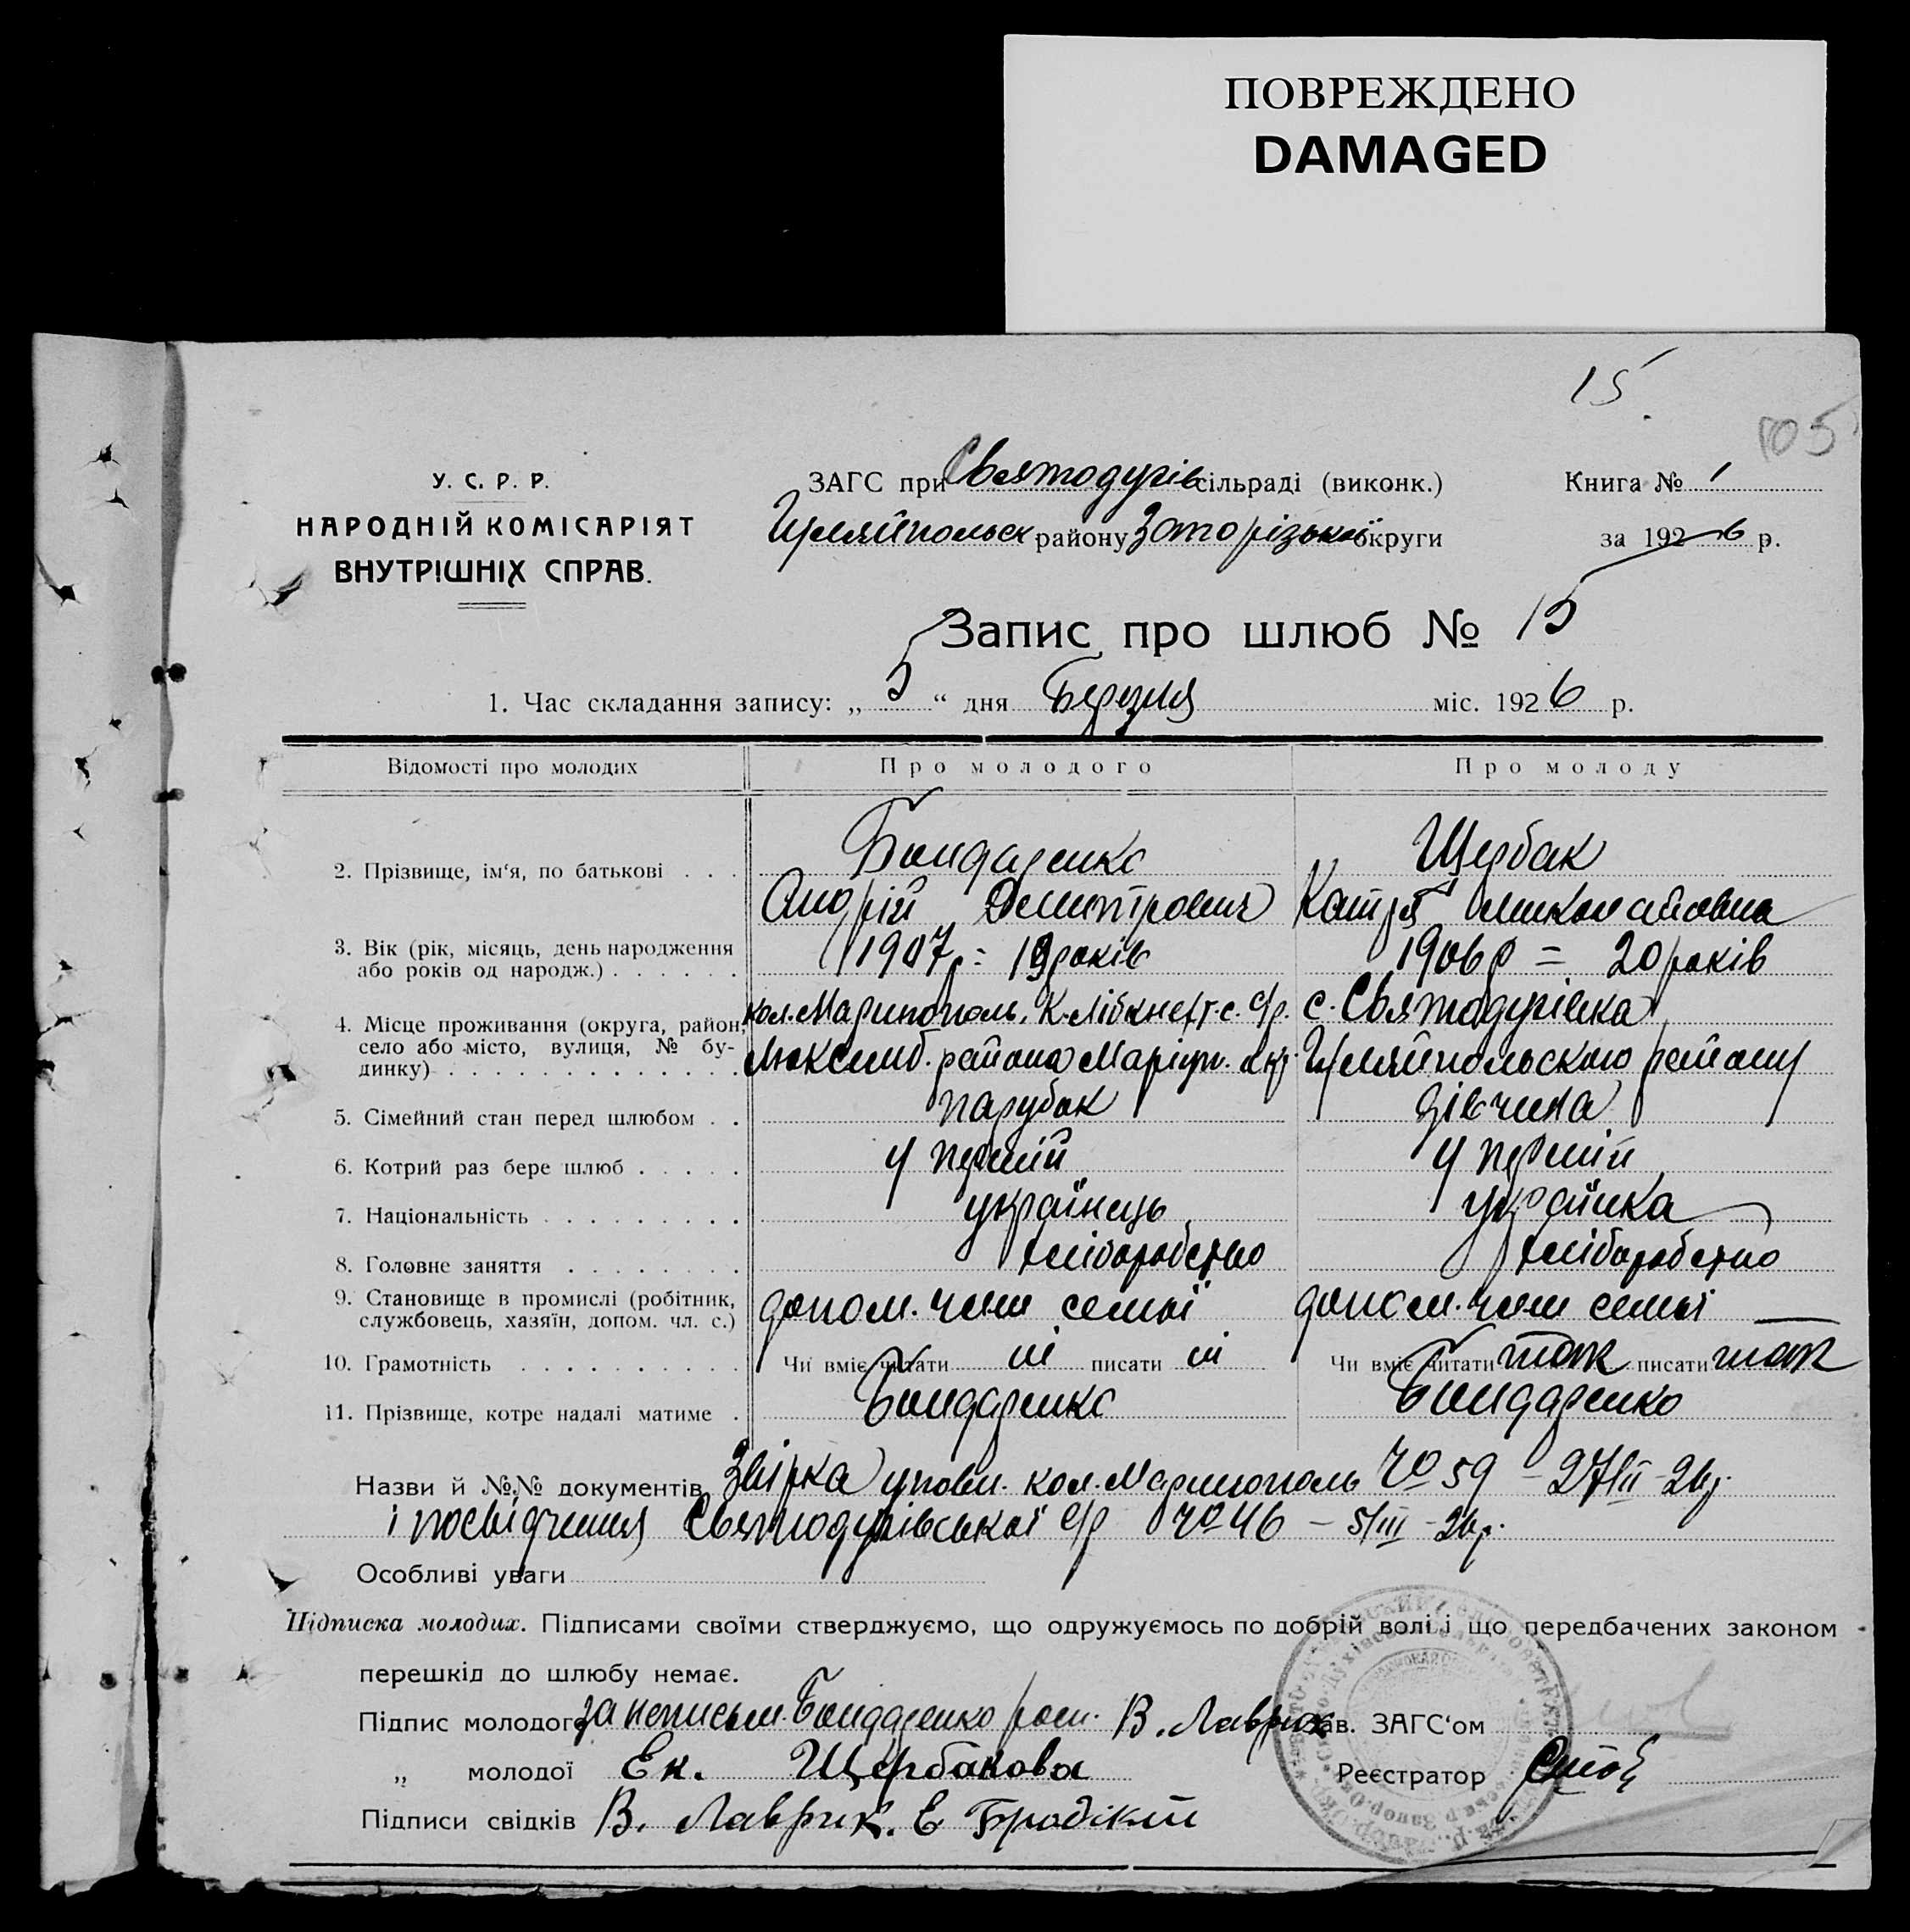 ПОВРЕЖДЕНО
DAMAGED
15
105
У. С. Р. Р.
НАРОДНІЙ КОМІСАРІЯТ
ВНУТРІШНІХ СПРАВ.
ЗАГС при Святодухів сільраді (виконк.)
Гуляйпольск району Запорізької округи
Книга № 1
за 1926 р.
Запис про шлюб № 15
1. Час складання запису: „ 5 “ дня Березня міс. 1926 р.
Відомості про молодих Про молодого Про молоду
2. Прізвище, ім‘я, по батькові . . . Бондаренко Щербак
Андрій Дмитрович Катря Миколаївна
3. Вік (рік, місяць, день народження
або років од народж.) . . . . . . 1907р = 19 років 1906р = 20 років
4. Місце проживання (округа, район, кол. Маринополь. К. Лібкнехт. с. С/р. с. Святодухівка
село або місто, вулиця, № бу-
динку) . . . . . . . . . . . . . Люксемб. района Маріуп. окр. Гуляйпольского району
5. Сімейний стан перед шлюбом . . парубок дівчина
6. Котрий раз бере шлюб . . . . . у перший у перший
7. Національність . . . . . . . . . українець українка
8. Головне заняття . . . . . . . . хліборобство хліборобство
9. Становище в промислі (робітник,
службовець, хазяїн, допом. чл. с.) допом. член семьї допом. член семьї
10. Грамотність . . . . . . . . . . Чи вміє читати ні писати ні Чи вміє читати так писати так
11. Прізвище, котре надалі матиме . Бондаренко Бондаренко
Назви й №№ документів Звірка уповн. кол. Маринополь № 59 – 27/II–26р.
і посвідчення Святодухівської С/р № 46 – 5/III–26р.
Особливі уваги
Підписка молодих. Підписами своїми стверджуємо, що одружуємось по добрій волі і що передбачених законом
перешкід до шлюбу немає.
Підпис молодого за неписьм. Бондаренко росп. В. Лаврик Зав. ЗАГС‘ом
„ молодої Ек. Щербакова Реєстратор
Підписи свідків В. Лаврик. Е